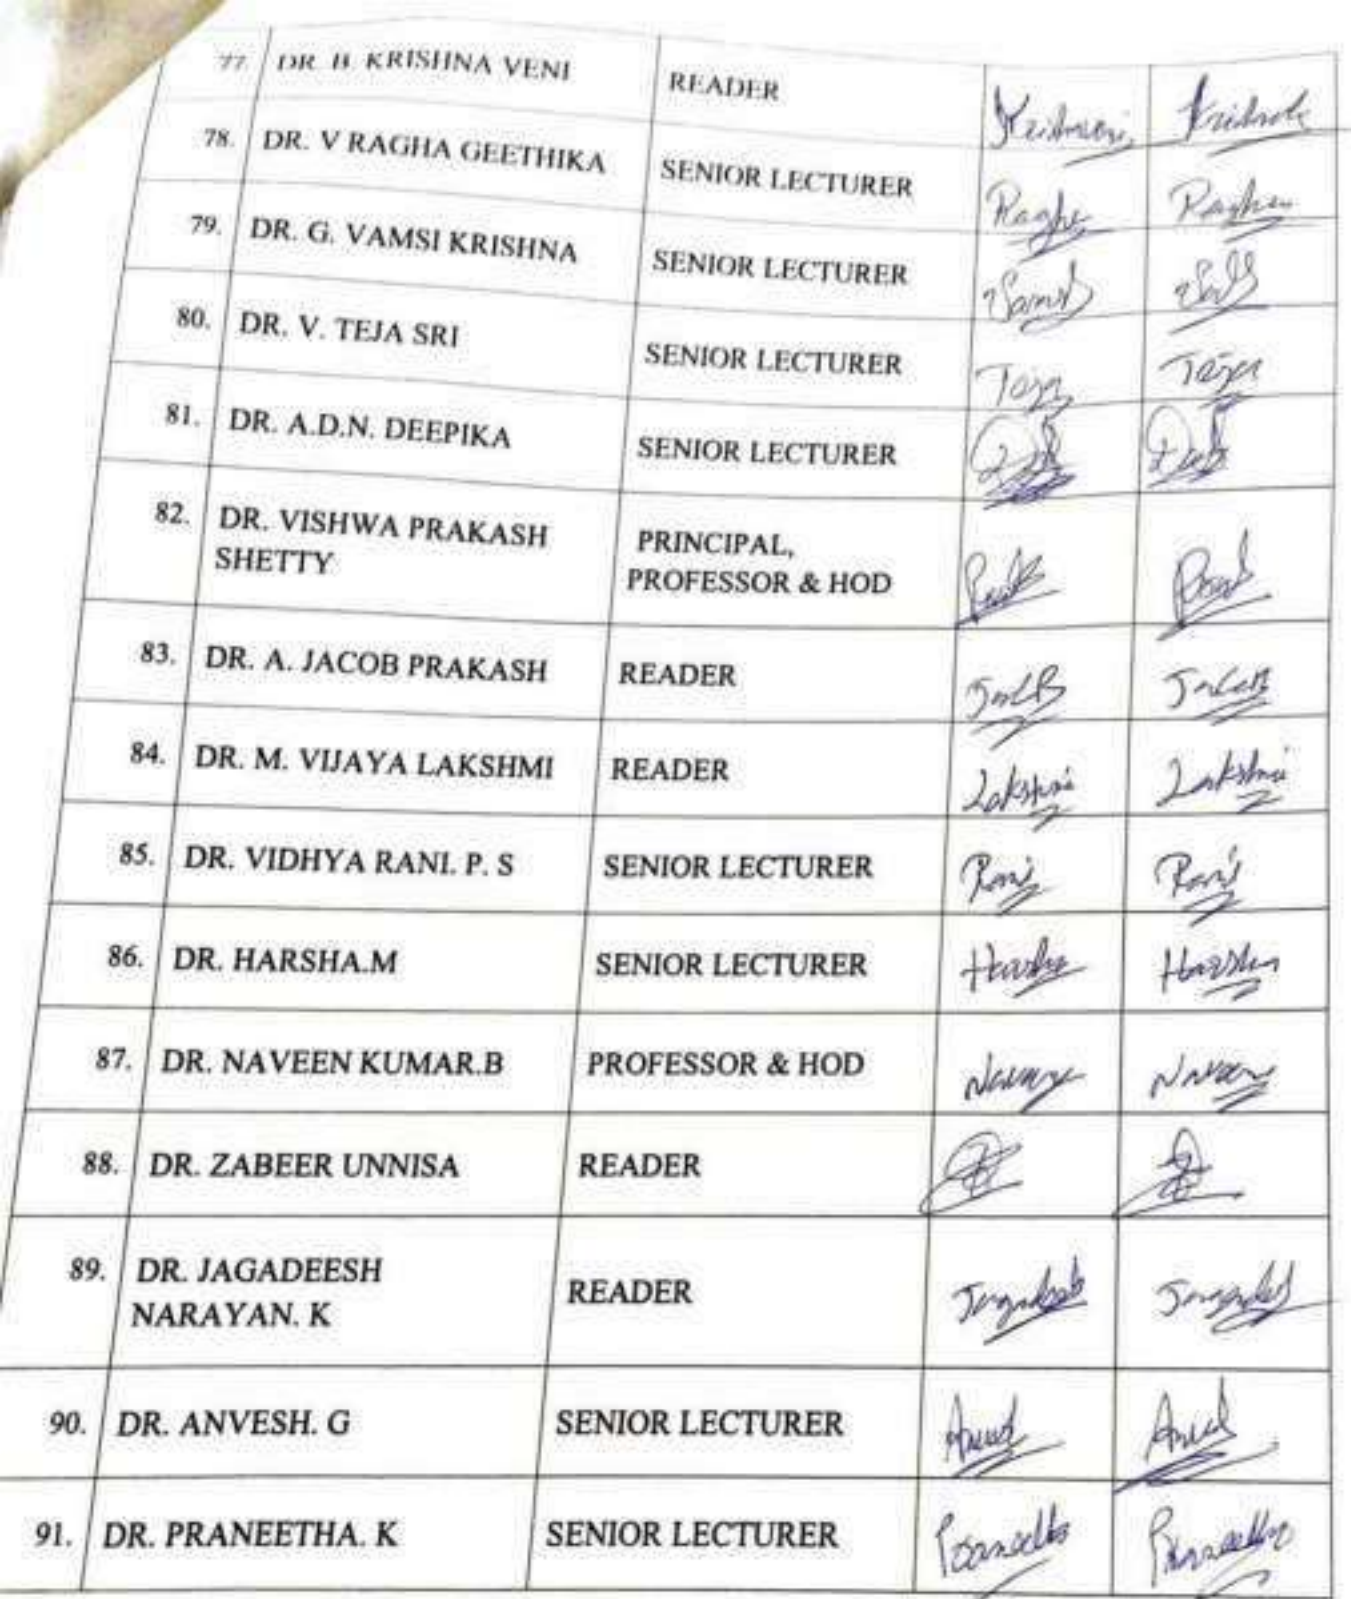 77. DR. B. KRISHNA VENI READER
78. DR. V RAGHA GEETHIKA SENIOR LECTURER Raghe Raghu
79. DR. G. VAMSI KRISHNA SENIOR LECTURER
80. DR. V. TEJA SRI SENIOR LECTURER Teja Teja
81. DR. A.D.N. DEEPIKA SENIOR LECTURER
82. DR. VISHWA PRAKASH
SHETTY
PRINCIPAL,
PROFESSOR & HOD
83. DR. A. JACOB PRAKASH READER
84. DR. M. VIJAYA LAKSHMI READER Lakshmi Lakshmi
85. DR. VIDHYA RANI. P. S SENIOR LECTURER Rani Rani
86. DR. HARSHA.M SENIOR LECTURER Harsha Harsha
87. DR. NAVEEN KUMAR.B PROFESSOR & HOD Naveen Naveen
88. DR. ZABEER UNNISA READER
89. DR. JAGADEESH
NARAYAN. K
READER Jagadeesh Jagadeesh
90. DR. ANVESH. G SENIOR LECTURER
91. DR. PRANEETHA. K SENIOR LECTURER Praneetha Praneetha